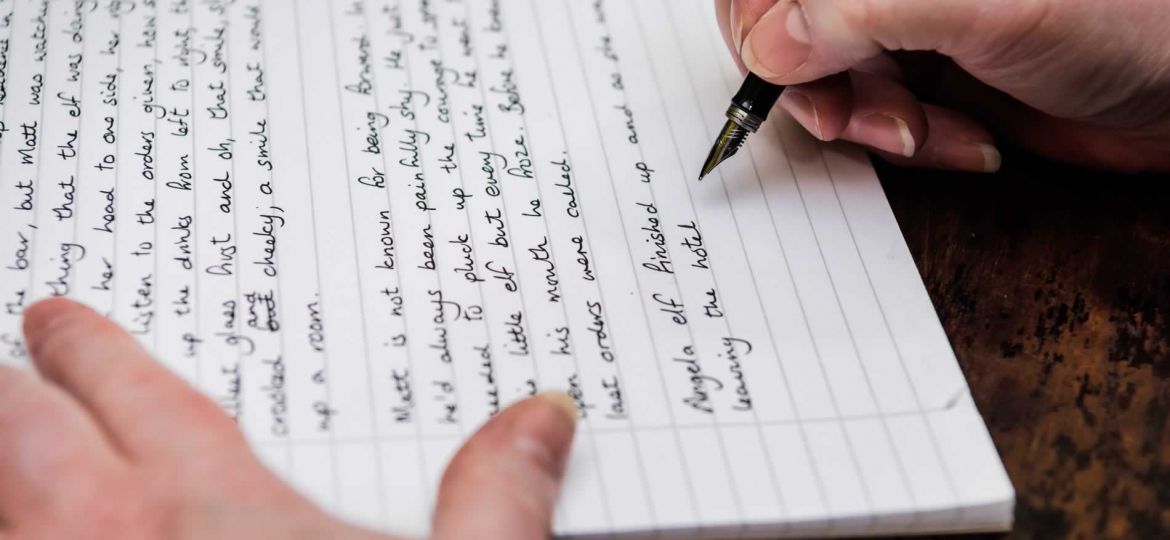 residence in
of the bar, but Matt was watchin
thing that the elf was doing
her head to one side, her
listen to the orders given, how s
up the drinks from left to right
glass first and oh, that smile,
crooked and cheeky; a smile that would
up a room.
Matt is not known for being forward. In
he'd always been painfully shy. He just
needed to pluck up the courage to
little elf but every time he went
open his mouth he froze. Before he
last orders were called.
Angela elf finished up and as she
leaving the hotel